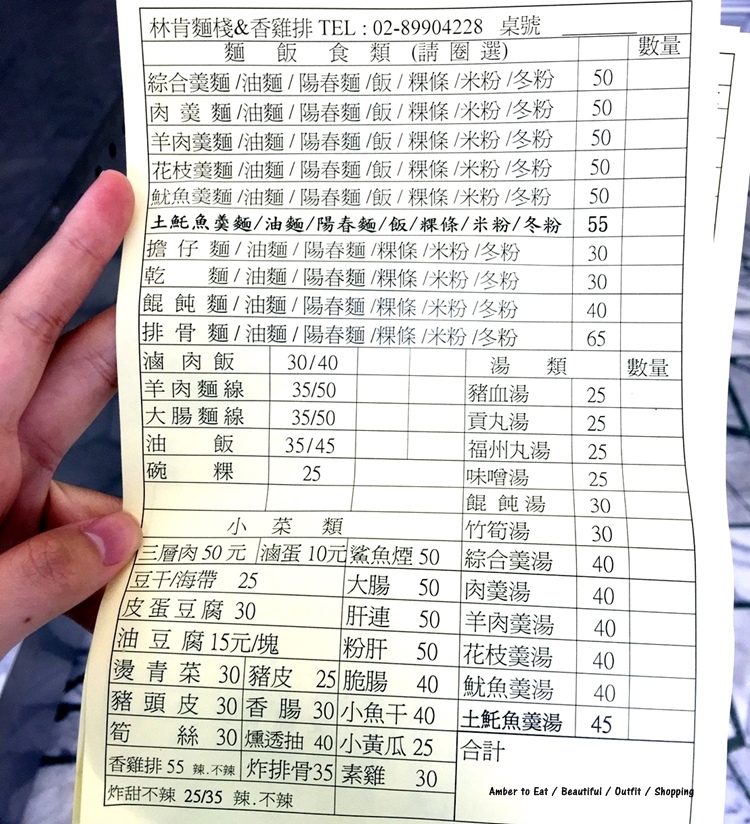 林肯麵棧&香雞排 TEL : 02-89904228 桌號
麵 飯 食 類 (請 圈 選) 數量
綜合羹麵 /油麵 / 陽春麵 /飯 / 粿條 /米粉 /冬粉 50
肉 羹 麵 /油麵 / 陽春麵 /飯 / 粿條 /米粉 /冬粉 50
羊肉羹麵 /油麵 / 陽春麵 /飯 / 粿條 /米粉 /冬粉 50
花枝羹麵 /油麵 / 陽春麵 /飯 / 粿條 /米粉 /冬粉 50
魷魚羹麵 /油麵 / 陽春麵 /飯 / 粿條 /米粉 /冬粉 50
土魠魚羹麵/油麵/陽春麵/飯/粿條/米粉/冬粉 55
擔 仔 麵 / 油麵 / 陽春麵 /粿條 /米粉 /冬粉 30
乾 麵 / 油麵 / 陽春麵 /粿條 /米粉 /冬粉 30
餛 飩 麵 / 油麵 / 陽春麵 /粿條 /米粉 /冬粉 40
排 骨 麵 / 油麵 / 陽春麵 /粿條 /米粉 /冬粉 65
滷 肉 飯 30/40 湯 類 數量
羊肉麵線 35/50 豬血湯 25
大腸麵線 35/50 貢丸湯 25
油 飯 35/45 福州丸湯 25
碗 粿 25 味噌湯 25
餛 飩 湯 30
小 菜 類 竹筍湯 30
三層肉 50 元 滷蛋 10元 鯊魚煙 50 綜合羹湯 40
豆干/海帶 25 大腸 50 肉羹湯 40
皮蛋豆腐 30 肝連 50 羊肉羹湯 40
油 豆 腐 15元/塊 粉肝 50 花枝羹湯 40
燙 青 菜 30 豬皮 25 脆腸 40 魷魚羹湯 40
豬 頭 皮 30 香 腸 30 小魚干 40 土魠魚羹湯 45
筍 絲 30 燻透抽 40 小黃瓜 25 合計
香雞排 55 辣.不辣 炸排骨35 素雞 30
炸甜不辣 25/35 辣.不辣
Amber to Eat / Beautiful / Outfit / Shopping